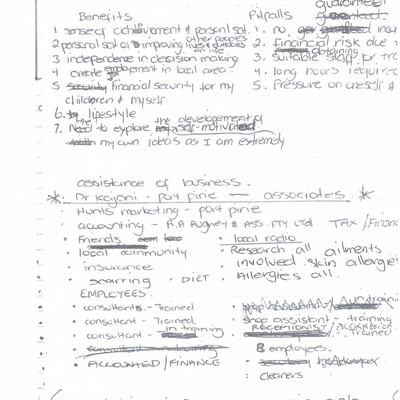 guarantee
Benefits
Pitfalls
1 sense of achievement & personal sat.
1. no
2 personal sat as improving other peoples lives & outlooks on life
2. financial risk due
3 independence in decision making
3. suitable staff for
4 create employment in local area
4. long hours required
5 financial security for my
5. Pressure on oneself &
children & myself
6. lifestyle
7. the Need to explore the development of self-motivated
my own ideas as I am extremely
assistance of business.
* Dr Kajani - port pirie — associates. *
Hunts marketing - port pirie
accounting - & ASS PTY LTD TAX / Financ
Friends
local radio
local community
Research all ailments
insurance
involved skin allergies
scarring
DIET
Allergies all.
EMPLOYEES.
consultant - Trained
consultant - Trained
shop assistant - training
consultant - in training
RECEPTIONIST / - trained
consultant - training
8 employees.
ACCOUNTED / FINANCE
bookkeeper
cleaners